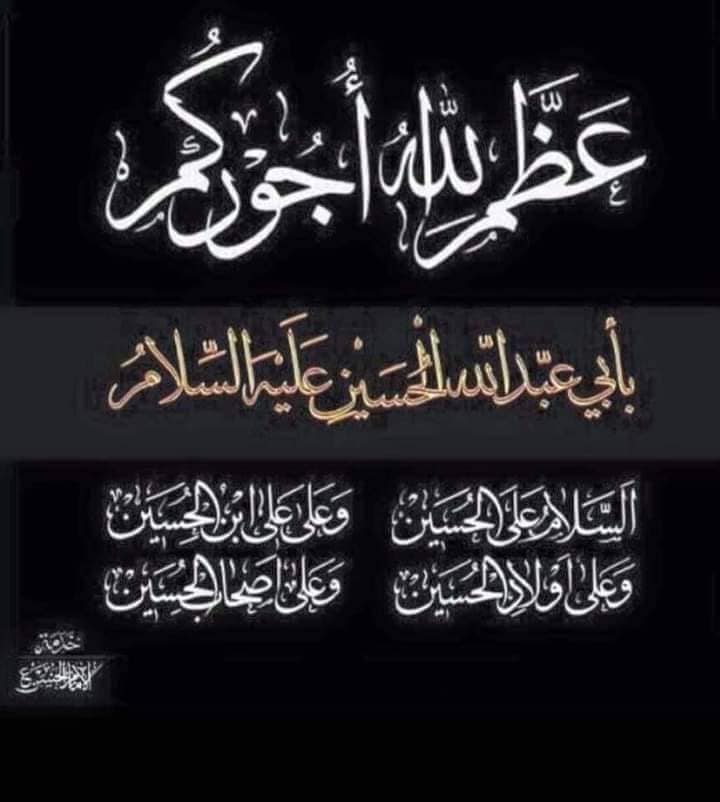 عَظَّمَ اللهُ أُجُوْرَكُمْ
بأبي عبدالله الحُسَيْنِ عَلَيْهِ السَّلامُ
اَلسَّلامُ عَلَى الحُسَيْن وَعَلى عَلى ابْنِ الحُسَيْن
وَعَلى اَوْلادِ الحُسَيْن وَعَلى اَصْحابِ الحُسَيْن
خدمة
الإمام الحسين ع